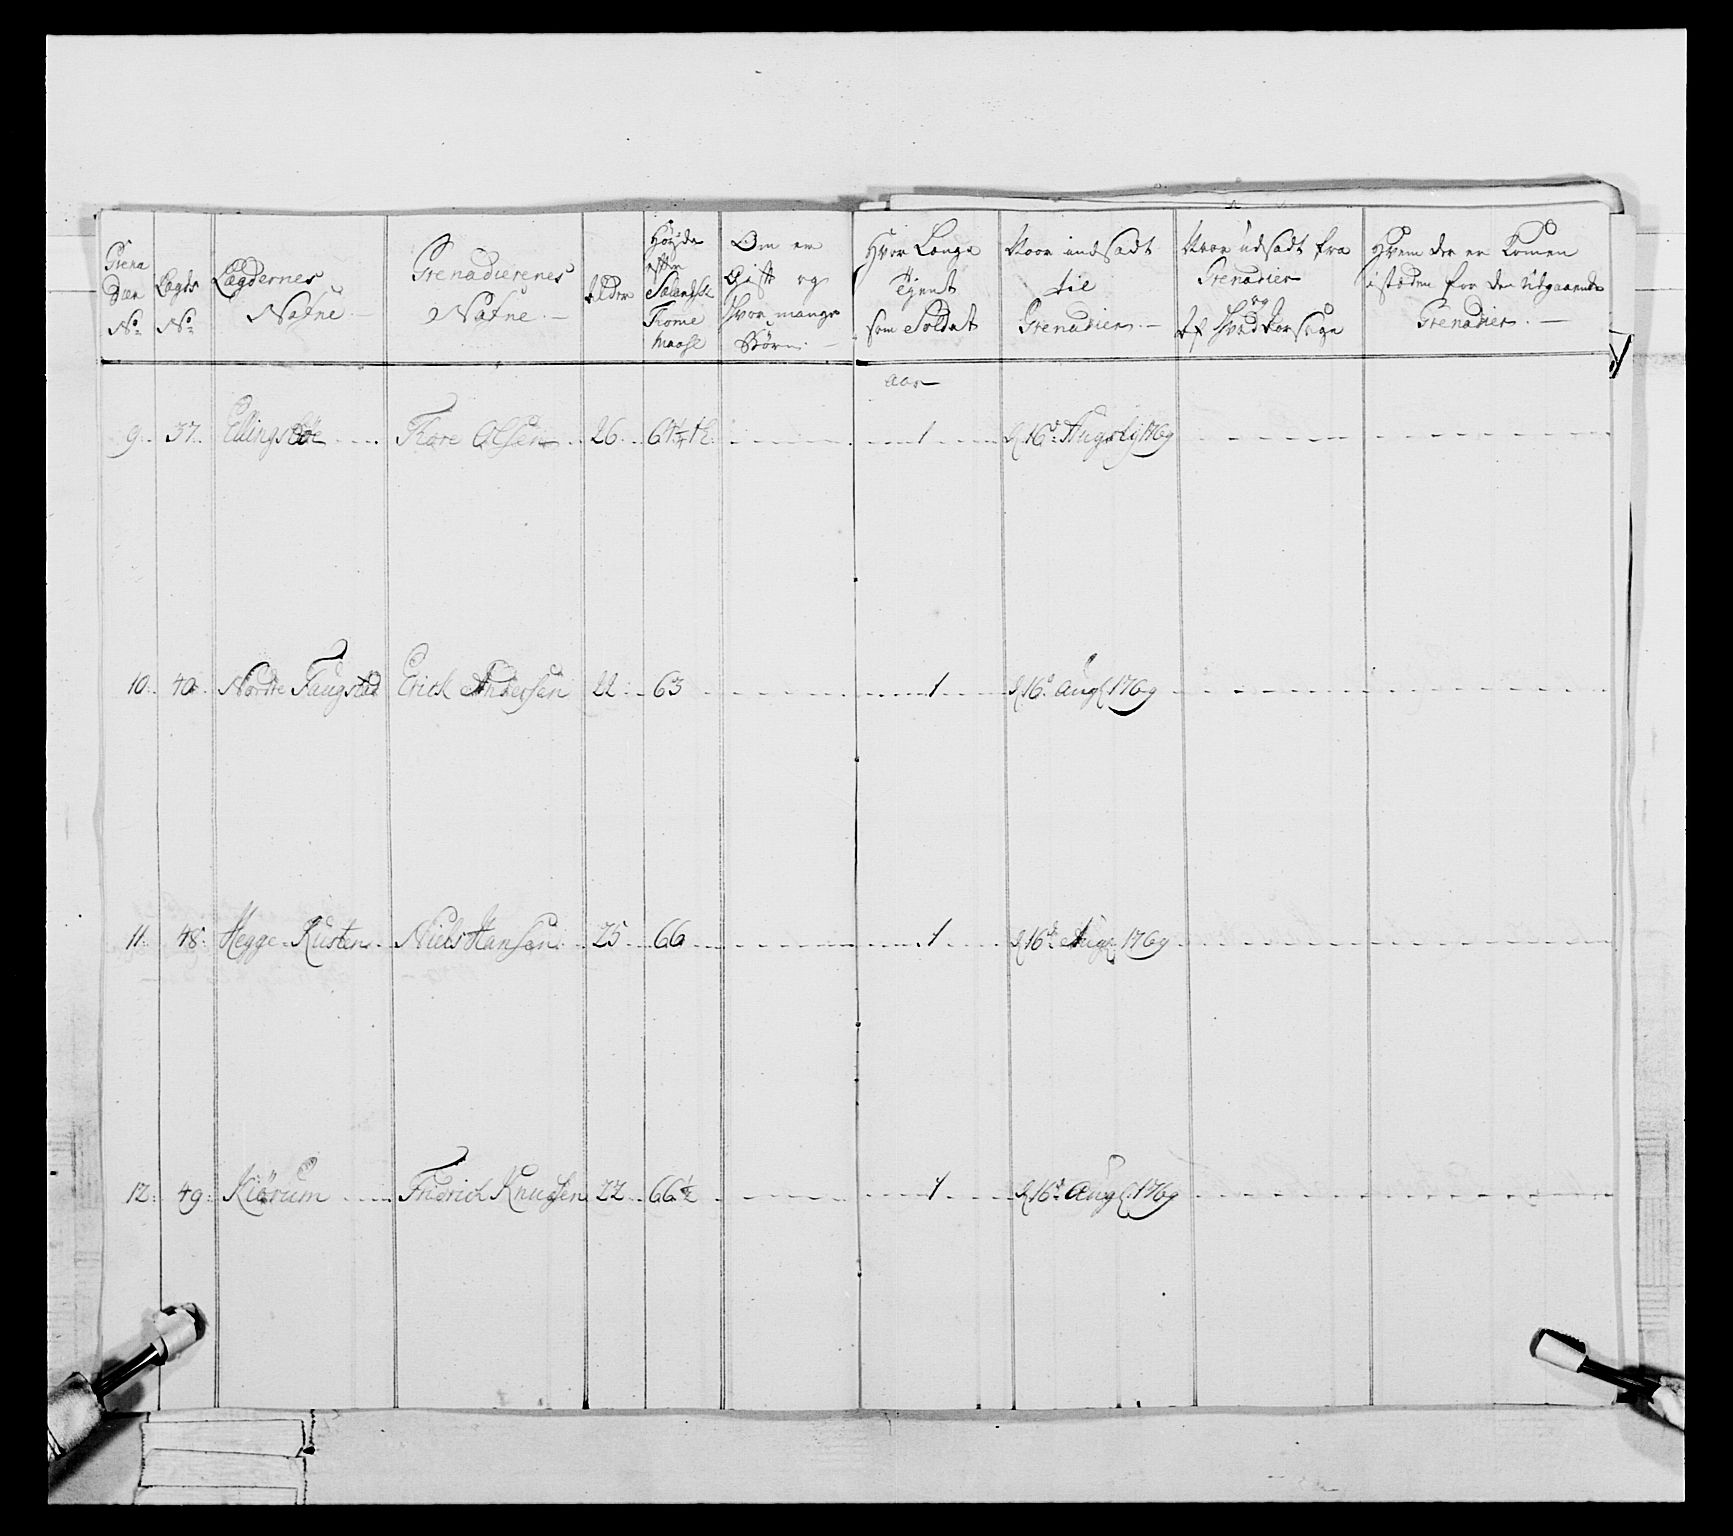 Grena
Dær
No
Lægds
No
Lægdernes
Nafne.
Grenadierenes
Nafne.
Alder
Høÿde
efter
Siælandske
Tome
Maahl
Om er
Gift og
hvor mange
Børn.
Hvor Længe
Tient
som Soldat
Naar indsadt
til
Grenadier.
Naar udsadt fra
Grenadier
og
af Hvad Aarsage
Hvem der er komen
i stæden for den Udgaaende
Grenadier.
aar
9. 37. Ellingsbøe Tore Olsen 26. 1 d 16de 1769
10. 40. Nordre Faugstad Erick Andersen 22 63 1 d 16de Aug 1769
11. 48. Hegge Kusten Niels Hansen 25 66 1 d 16de Aug 1769
12. 49. Kiørum Fridrich Knudsen 22 66½ 1 d 16de Aug 1769